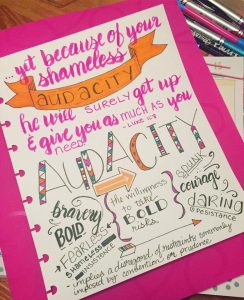 ...yet because of your
shameless
AUDACITY
he will SURELY get up
& give you as much AS you
need
- LUKE 11:8
AUDACITY
bravery
BOLD
Fearless
SHAMELESS
INSISTENCE
the willingness
to take
BOLD
risks.
SPUNK
courage
DARING
PERSISTANCE
- implies a disregard of restraints commonly
imposed by convention or prudence